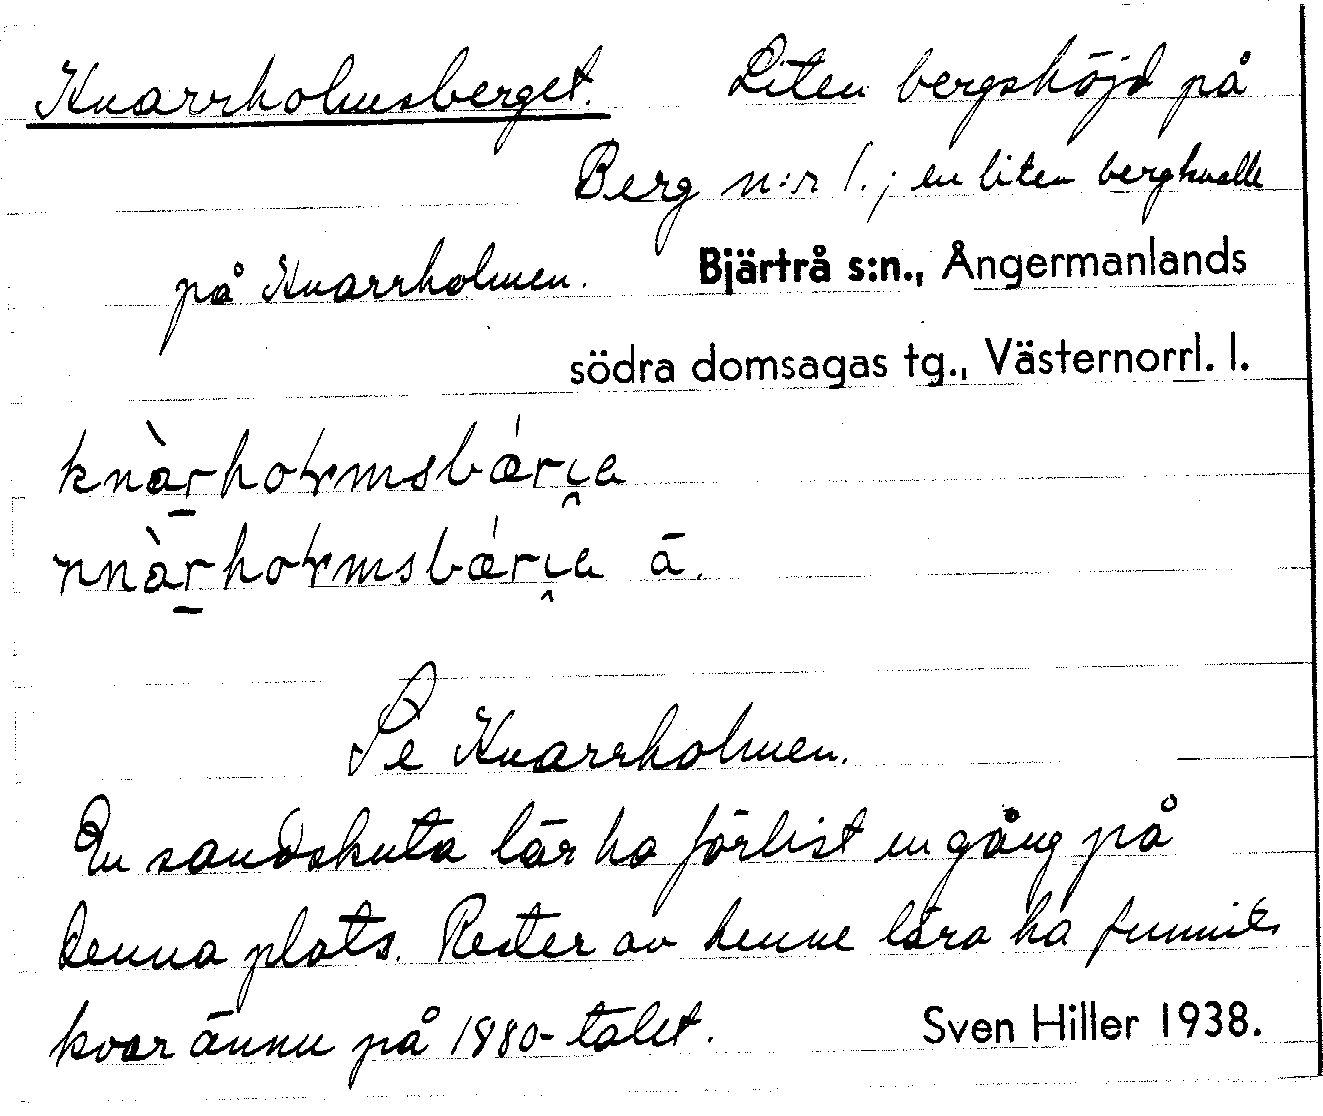 Knarrholmsberget. Liten bergshöjd på
Berg n:r 1.; en liten bergknalle
på Knarrholmen. Bjärtrå s:n., Ångermanlands
södra domsagas tg., Västernorrl. l.
knàrhoɫmsbǽrɩ̯a
nnàrhoɫmsbǽrɩ̯a ā.
Se Knarrholmen.
En sandskuta lär ha förlist en gång på
denna plats. Rester av henne lära ha funnits
kvar ännu på 1880-talet. Sven Hiller 1938.